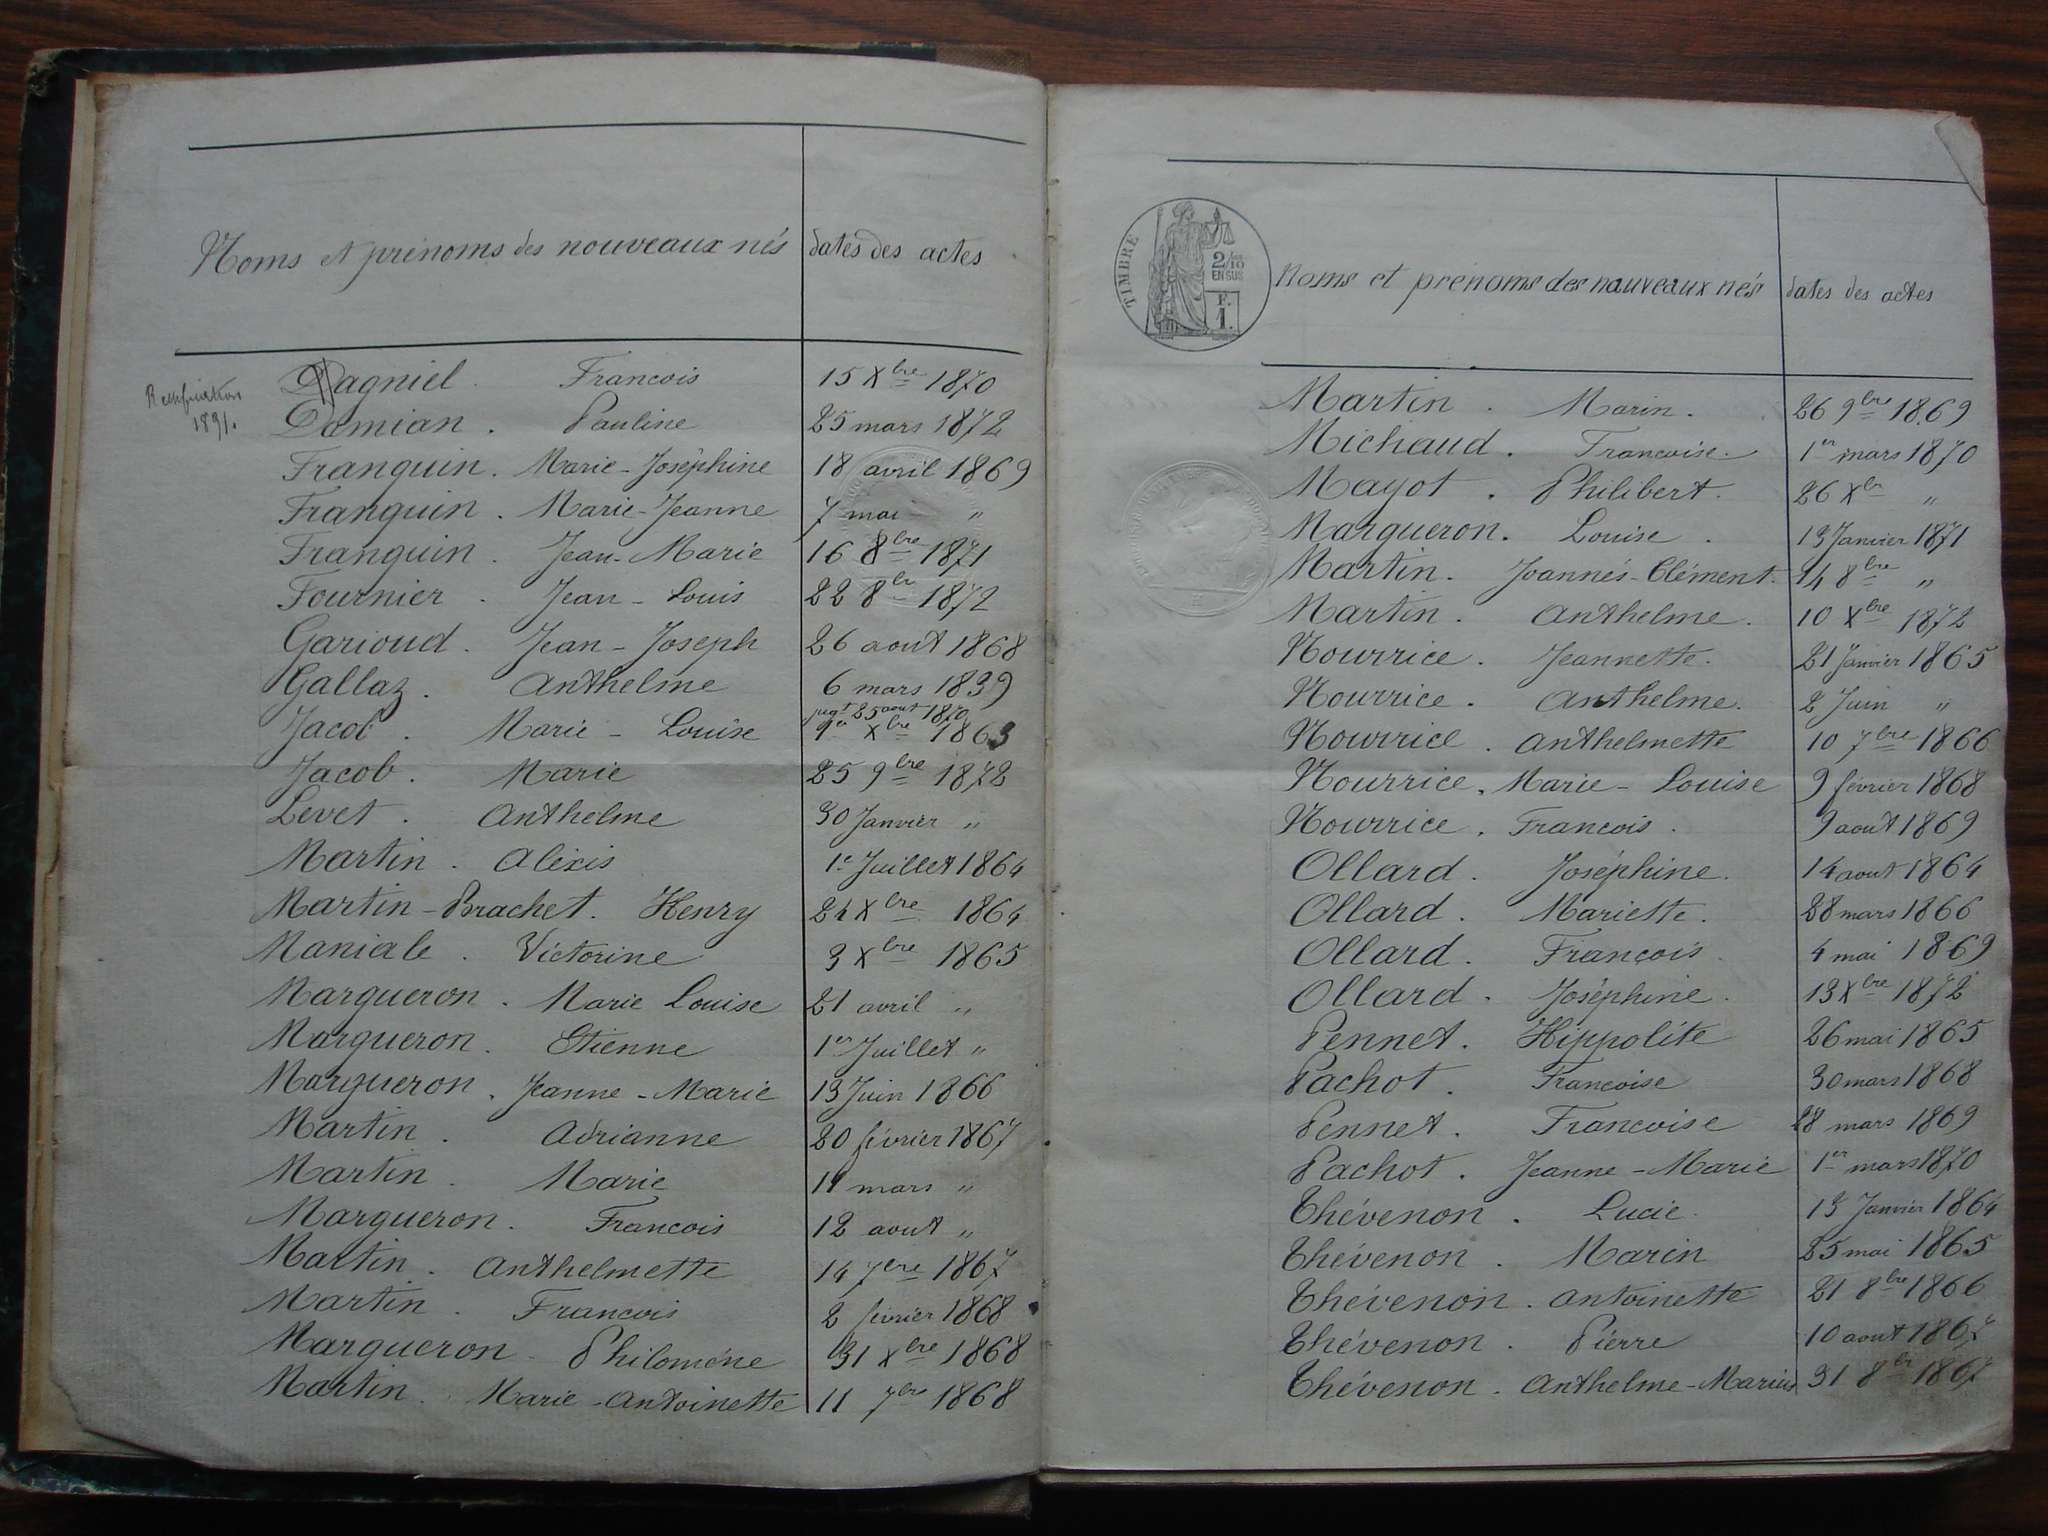 Noms et prénoms des nouveaux nés dates des actes
Rectification
1891.
Dagniel. François 15 Xbre 1870
Damian. Pauline 25 mars 1872
Franquin. Marie-Joséphine 18 avril 1869
Franquin. Marie-Jeanne 7 mai "
Franquin. Jean-Marie 16 8bre 1871
Fournier. Jean-Louis 22 8br 1872
Garioud. Jean-Joseph 26 aout 1868
Gallaz. Anthelme 6 mars 1839
jugt 25 aout 1870
Jacob. Marie-Louise 1er Xbre 1863
Jacob. Marie 25 9bre 1872
Levet. Anthelme 30 Janvier "
Martin. Aléxis 1e Juillet 1864
Martin-Brachet. Henry 24 Xbre 1864
Maniale. Victorine 3 Xbre 1865
Margueron. Marie Louise 21 avril "
Margueron. Etienne 1er Juillet "
Margueron. Jeanne-Marie 13 Juin 1866
Martin. Adrianne 20 février 1867
Martin. Marie 14 mars "
Margueron. Francois 12 aout "
Martin. Anthelmette 14 7bre 1867
Martin. Francois 2 février 1868
Margueron. Philoméne 31 Xbre 1868
Martin. Marie-Antoinette 11 7bre 1868
TIMBRE
2/10
EN SUS
F.
1.
Noms et prénoms des nouveaux nés dates des actes
Martin. Marin. 26 9bre 1869
Michaud. Francoise. 1er mars 1870
Mayot. Philibert. 26 Xbr "
Margueron. Louise. 13 Janvier 1871
Martin. Joannés-Clément. 24 8bre "
Martin. Anthelme. 10 Xbre 1872
Nourrice. Jeannette. 21 Janvier 1865
Nourrice. Anthelme. 2 Juin "
Nourrice. Anthelmette 10 7bre 1866
Nourrice. Marie-Louise 9 février 1868
Nourrice. Francois. 9 aout 1869
Ollard. Joséphine. 14 aout 1864
Ollard. Mariette. 28 mars 1866
Ollard. François. 4 mai 1869
Ollard. Joséphine. 13 Xbre 1872
Pennet. Hippolite 26 mai 1865
Pachot. Francoise 30 mars 1868
Pennet. Francoise 28 mars 1869
Pachot. Jeanne-Marie 1er mars 1870
Thévenon. Lucie. 13 Janvier 1864
Thévenon. Marin 25 mai 1865
Thévenon. Antoinette 21 8bre 1866
Thévenon. Pierre 10 aout 1867
Thévenon. Anthelme-Marius 31 8br 1867